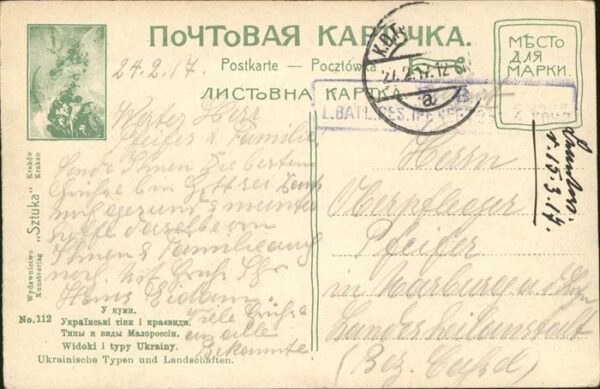 ПОЧТОВАЯ КАРТОЧКА.
Postkarte — Pocztówka.
ЛИСТОВНА КАРТКА
МѢСТО
ДЛЯ
МАРКИ.
K.D.
24.2.17. 12
a
24.2.17.
Werter Herr
Pfeifer & Familie
Sende Ihnen die besten
Grüße bin Gott sei Dank
noch gesund & munter
hoffe dasselbe von
Ihnen & Familie auch
noch. Gruß
Hans
Viele Grüße
an alle
Bekannte
Herrn
Oberpfleger
Pfeifer
in Marburg a
Landesheilanstalt
(Bez. Cassel)
15.3.17.
Wydawnictwo "Sztuka" Kraków
Kunstverlag Krakau
No. 112
У куми.
Українські тіпи і краєвиди.
Типы и виды Малороссіи.
Widoki i typy Ukrainy.
Ukrainische Typen und Landschaften.